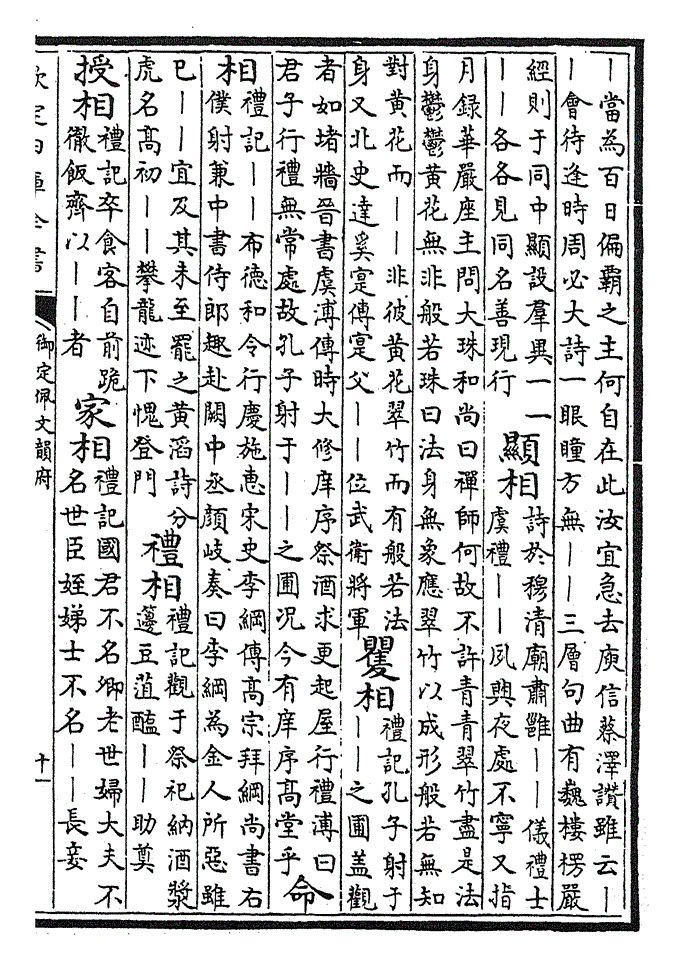 丨當為百日偏霸之主何自在此汝宜急去庾信蔡澤讚雖云丨
丨會待逢時周必大詩一眼瞳方無丨丨三層句曲有巍樓楞嚴
經則于同中顯設羣異一一
丨丨各各見同名善現行
顯相
詩於穆清廟肅雝丨丨儀禮士
虞禮丨丨夙興夜處不寧又指
月録華嚴座主問大珠和尚曰禪師何故不許青青翠竹盡是法
身鬱鬱黃花無非般若珠曰法身無象應翠竹以成形般若無知
對黃花而丨丨非彼黃花翠竹而有般若法
身又北史達奚寔傳寔父丨丨位武衛將軍
矍相
禮記孔子射于
丨丨之圃蓋觀
者如堵牆晉書虞溥傳時大修庠序祭酒求更起屋行禮溥曰
君子行禮無常處故孔子射于丨丨之圃况今有庠序高堂乎
命
相
禮記丨丨布德和令行慶施惠宋史李綱傳高宗拜綱尚書右
僕射兼中書侍郎趣赴闕中丞顔岐奏曰李綱為金人所惡雖
已丨丨宜及其未至罷之黃滔詩分
虎名高初丨丨攀龍迹下愧登門
禮相
禮記觀于祭祀納酒漿
籩豆菹醢丨丨助奠
授相
禮記卒食客自前跪
徹飯齊以丨丨者
家相
禮記國君不名卿老世婦大夫不
名世臣姪娣士不名丨丨長妾
欽定四庫全書
御定佩文韻府
十一